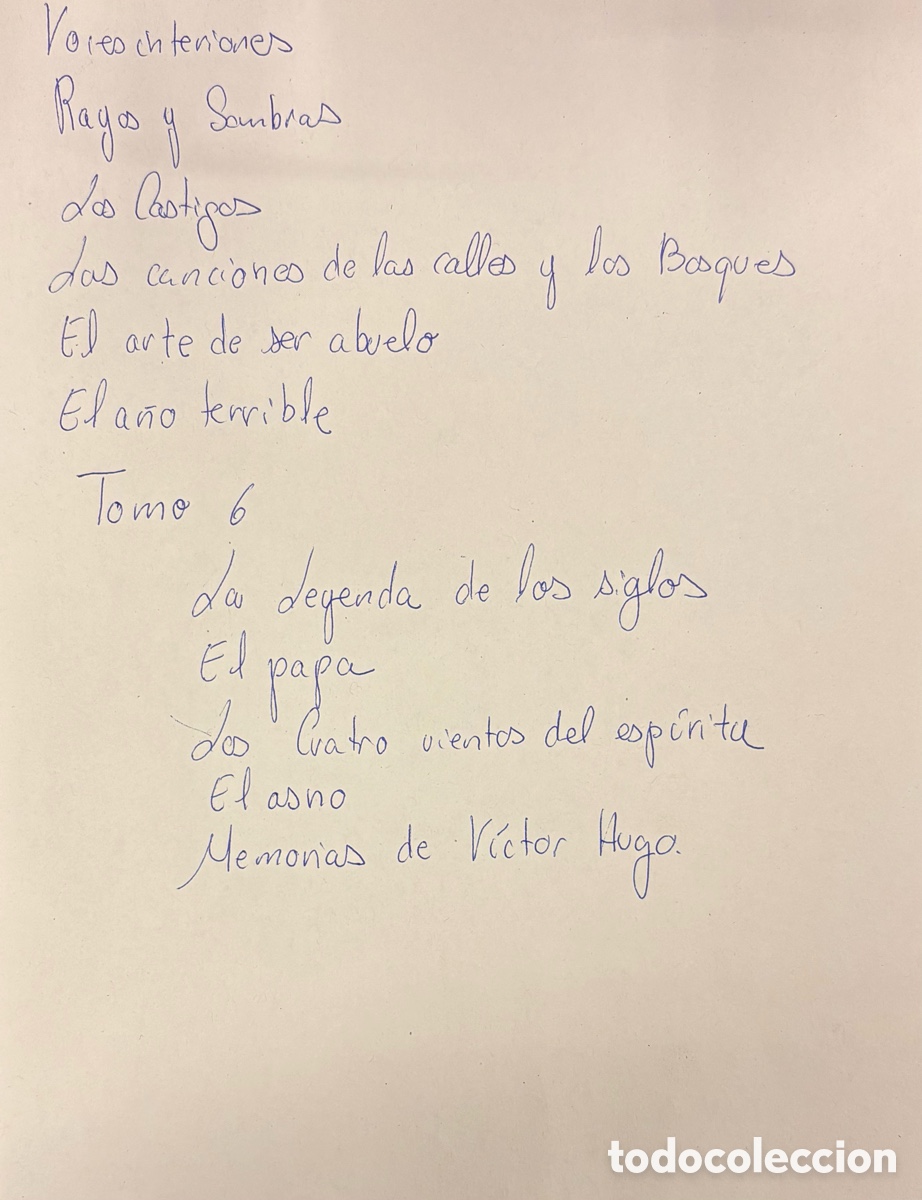 Voces interiores
Rayos y Sombras
Los Castigos
Las canciones de las calles y los Bosques
El arte de ser abuelo
El año terrible
Tomo 6
La Legenda de los siglos
El papa
Los Cuatro vientos del espíritu
El asno
Memorias de Víctor Hugo.
todocoleccion